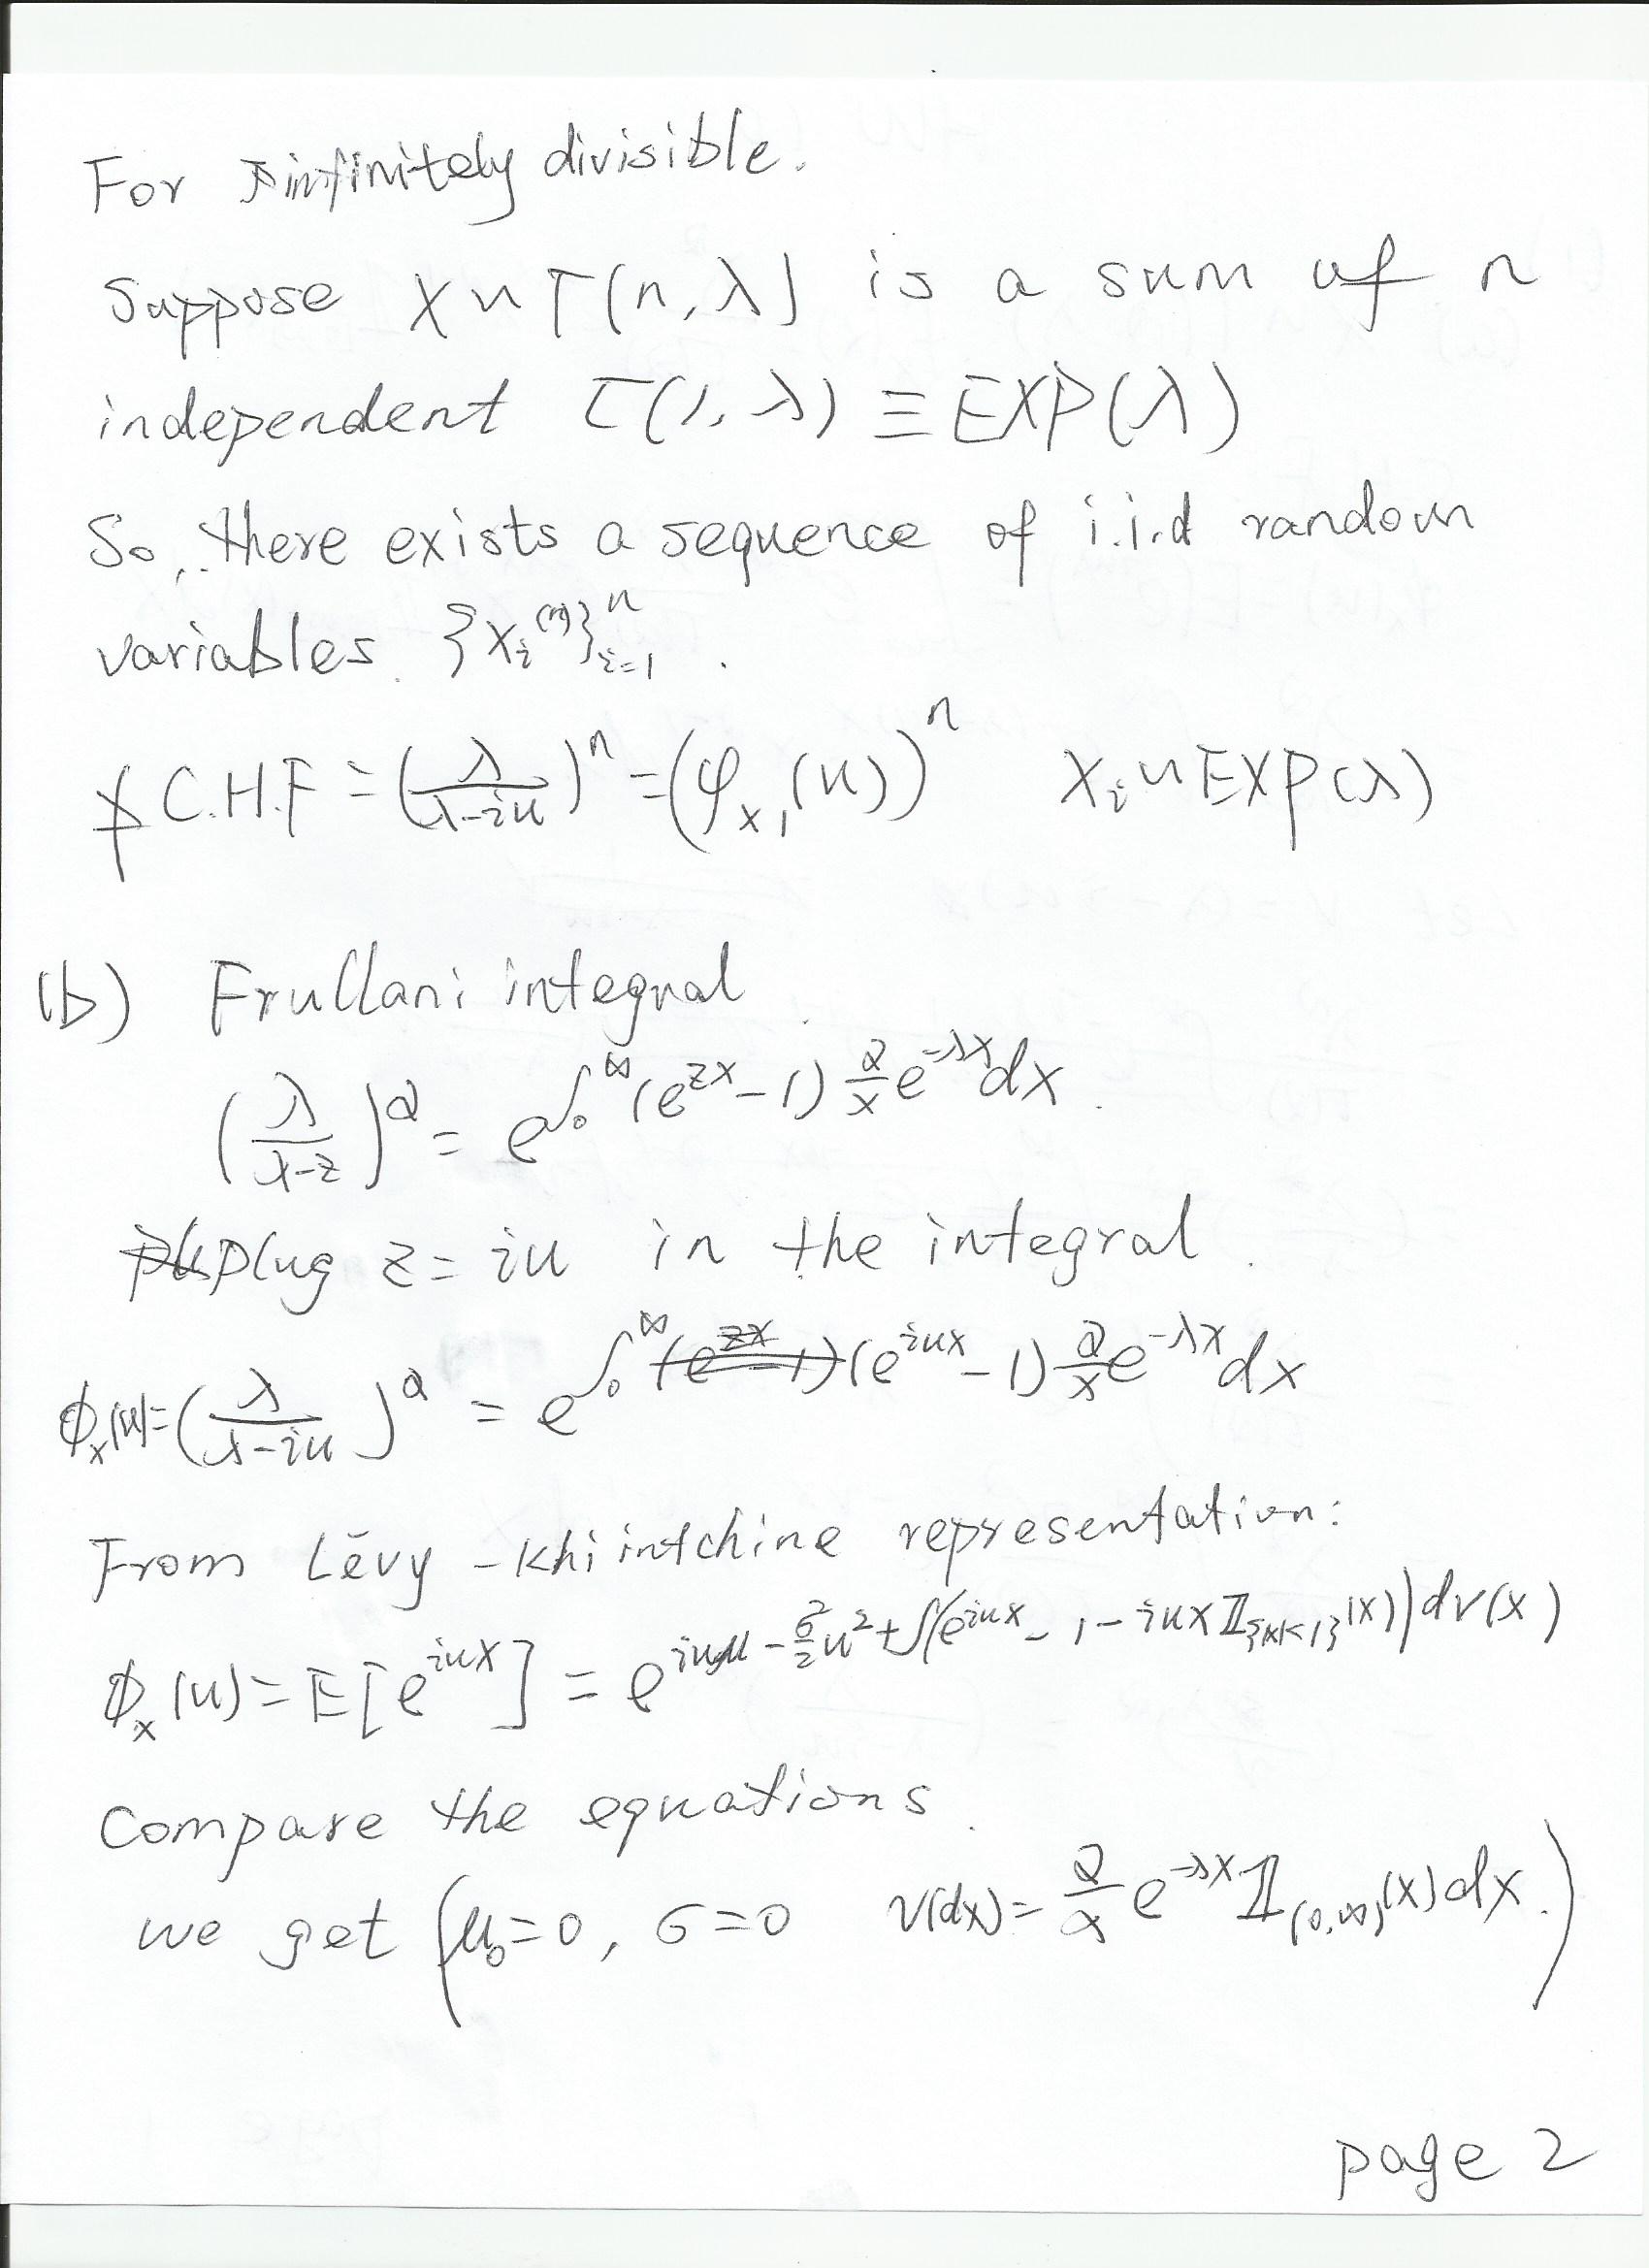 For infinitely divisible.
Suppose X ~ Γ(n, λ) is a sum of n
independent Γ(1, λ) ≡ EXP(λ)
So, there exists a sequence of i.i.d random
variables. {X_i^(n)}_{i=1}^n .
C.H.F = (λ/(λ-iu))^n = (φ_{x_1}(u))^n X_i ~ EXP(λ)
(b) Frullani integral.
(λ/(λ-z))^α = e^{∫_0^∞ (e^{zx} - 1) α/x e^{-λx} dx}.
plug z = iu in the integral.
ϕ_x(u) = (λ/(λ-iu))^α = e^{∫_0^∞ (e^{iux} - 1) α/x e^{-λx} dx}
From Lēvy - Khiintchine representation:
ϕ_x(u) = E[e^{iux}] = e^{iuμ - σ²/2 u² + ∫(e^{iux} - 1 - iux 𝟙_{|x|<1}(x)) dν(x)}
Compare the equations.
we get (μ_0 = 0, σ = 0 ν(dx) = α/x e^{-λx} 𝟙_{(0,∞)}(x) dx.)
page 2